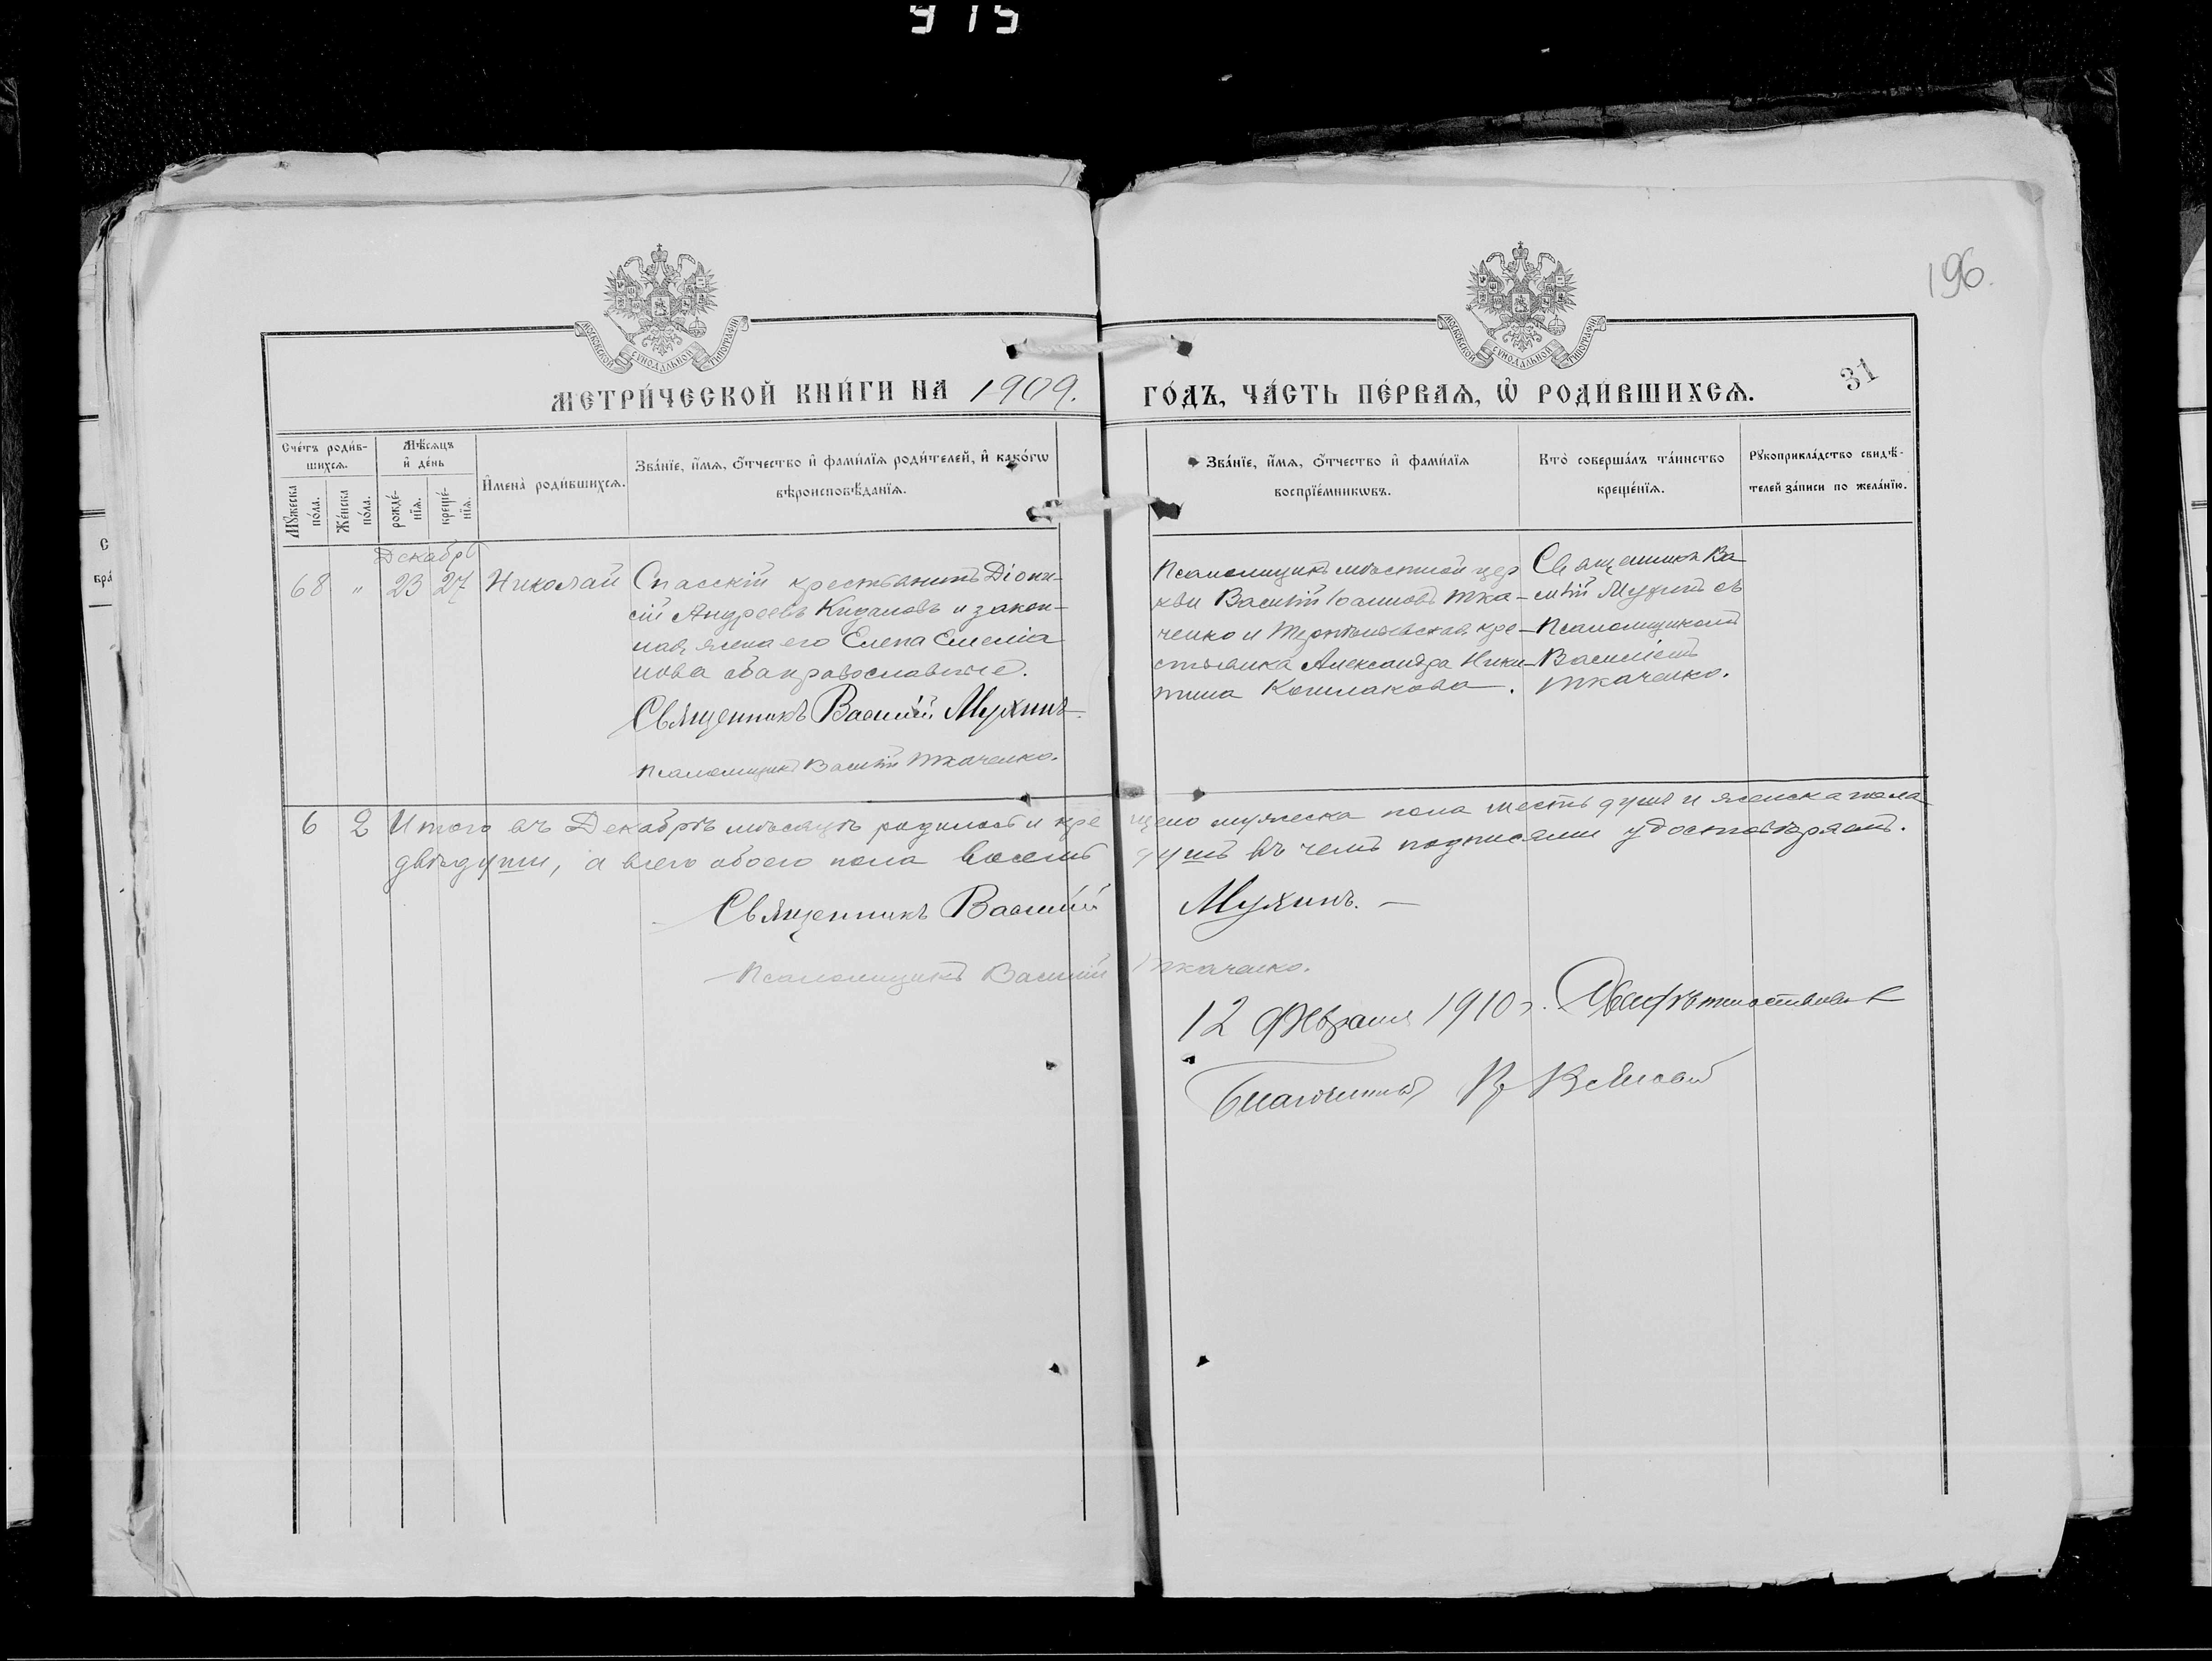 915
196.
31
МОСКОВСКОЙ СѴНОДАЛЬНОЙ ТИПОГРАФІИ
МОСКОВСКОЙ СѴНОДАЛЬНОЙ ТИПОГРАФІИ
МЕТРИ́ЧЕСКОЙ КНИ́ГИ НА 1909. ГО́ДЪ, ЧА́СТЬ ПЕ́РВАѦ, Ѡ҆ РОДИ́ВШИХСѦ.
Сче́тъ роди́в-
шихсѧ.
Мꙋ́жеска по́ла.
Же́нска по́ла.
Мѣ́сѧцъ
и҆ де́нь
рожде́-
нїѧ.
креще́-
нїѧ.
И҆мена̀ роди́вшихсѧ.
Зва́нїе, и҆́мѧ, ѻ҆́тчество и҆ фами́лїѧ роди́телей, и҆ како́гѡ
вѣроисповѣ́данїѧ.
Зва́нїе, и҆́мѧ, ѻ҆́тчество и҆ фами́лїѧ
воспрїе́мникѡвъ.
Кто̀ соверша́лъ та́инство
креще́нїѧ.
Рꙋкоприкла́дство свидѣ́-
телей за́писи по жела́нїю.
Декабрь
68 " 23 27 Николай
Спасскій крестьянинъ Діони-
сій Андреевъ Кидаловъ и закон-
ная жена его Елена Емеліа
нова оба православные.
Священникъ Василій Мухинъ.
Псаломщикъ Василій Ткаченко.
Псаломщикъ мѣстной цер
кви Василій Іоанновъ Тка-
ченко и Терентьевская кре-
стьянка Александра Ники-
тина Кошлакова.
Священникъ Ва
силій Мухинъ съ
Псаломщикомъ
Василіемъ
Ткаченко.
6 2 Итого въ Декабрѣ мѣсяцѣ родилось и кре щено мужеска пола шесть душъ и женска пола
двѣ души, а всего обоего пола восемь душъ въ чемъ подписями удостовѣряемъ.
Священникъ Василій Мухинъ.
Псаломщикъ Василій Ткаченко.
12 Февраля 1910 г.
Благочинный